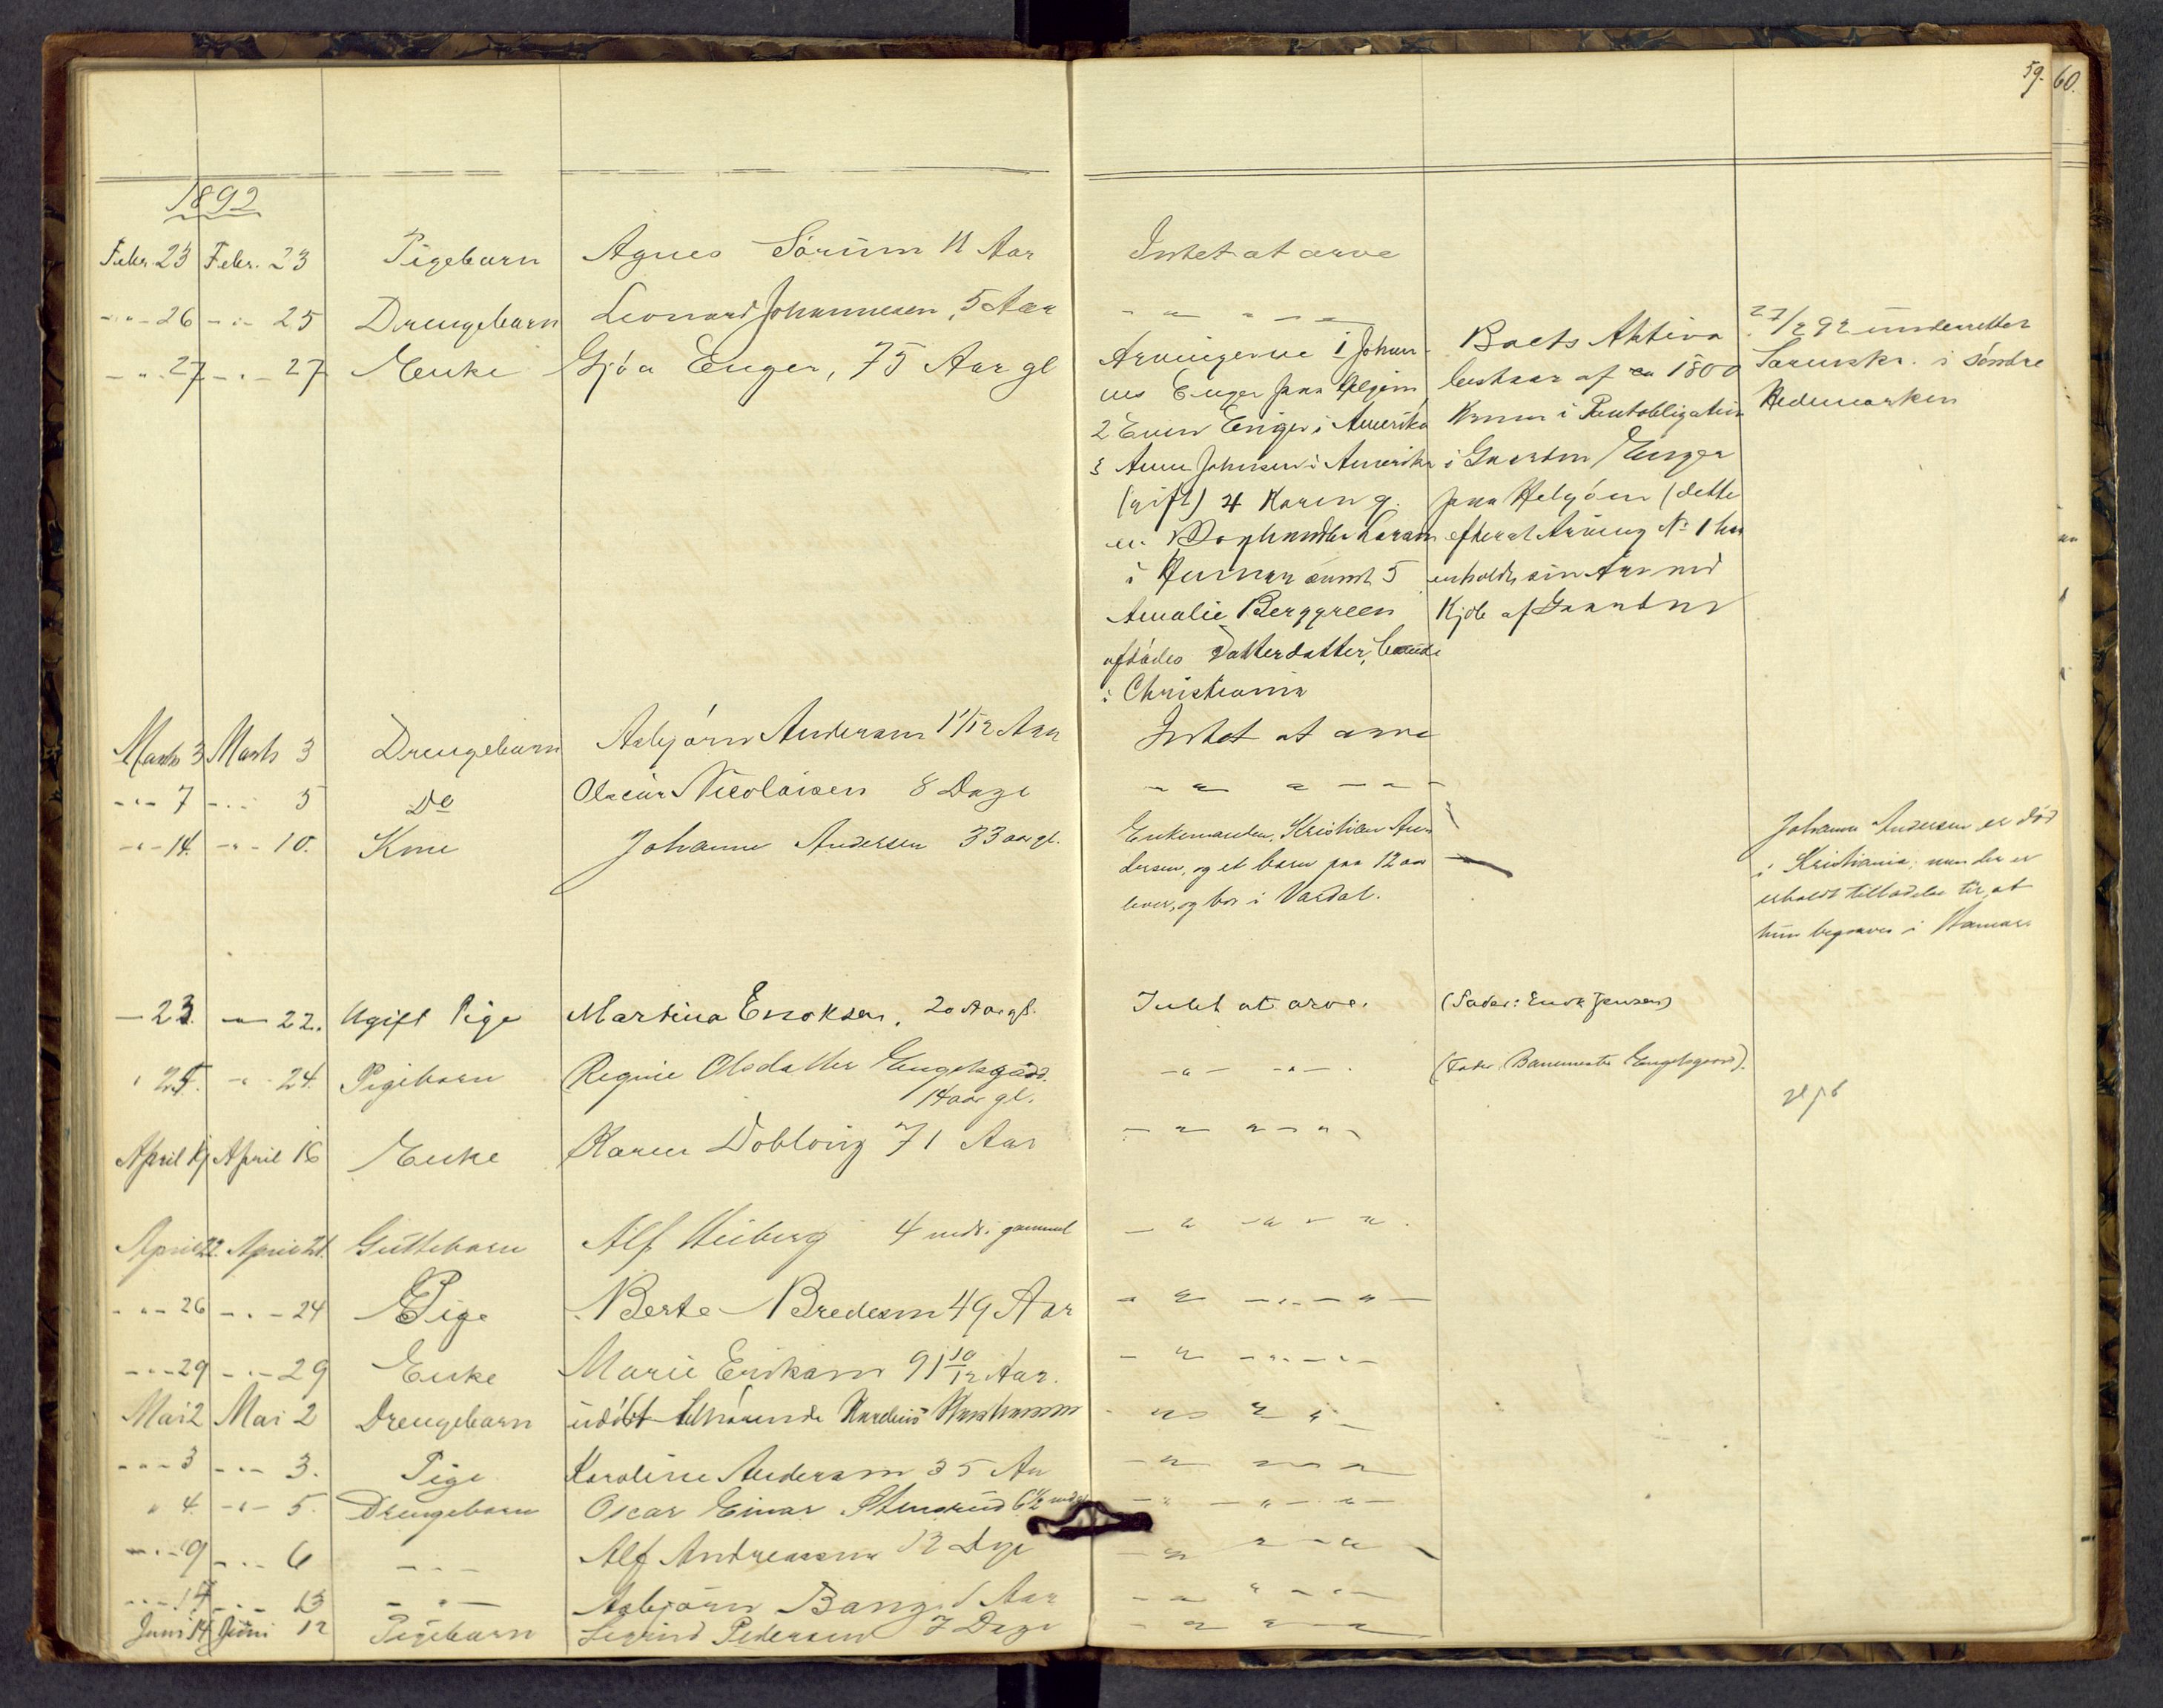 59. 60.
1892
Febr. 23 Febr. 23 Pigebarn Agnes Sørum 11 Aar Intet at arve
-"- 26 -"- 25 Drengebarn Leonard Johannesen, 5 Aar - " - " - -
-"- 27 -"- 27 Enke Gjøa Enger, 75 Aar gl
Arvingerne 1 Johan-
nes Enger paa Helgøen
2 Even Enger i Amerika
3 Anne Johnsen i Amerika
(gift) 4 Karen g.
m. Boghandler Larsen
i Hamar samt 5
Amalie Berggreen
afdødes Datterdatter, boende
i Christiania
Boets Aktiva
bestaar af ca 1800
Kroner i Pantobligation
i Gaarden Enger
paa Helgøen (dette
efter at Arving No 1 har
erholdt sin Arv ved
Kjøb af Gaarden
27/2 92 underrettet
Sorenskr. i Søndre
Hedemarken
Marts 3 Marts 3 Drengebarn Asbjørn Andersen 1 1/12 Aar Intet at arve
-"- 7 -"- 5 Do Oscar Nicolaisen 8 Dage - " - " - " -
-"- 14. -"- 10. Kone Johanne Andersen 33 aar gl.
Enkemanden, Kristian An-
dersen, og et barn paa 12 aar
lever, og bor i Vardal.
Johanne Andersen er død
i Kristiania, men der er
erholdt tilladelse til, at
hun begraves i Hamar.
- 23. -"- 22. Ugift Pige Martina Enoksen, 20 Aar gl. Intet at arve. (Fader: Enok Jensen)
" 25. -"- 24. Pigebarn Regine Olsdatter Engelsgaard. -"- -"-. (Fader Banemester Engelsgaard).
14 aar gl.
April 19 April 16 Enke Karen Dobloug 71 Aar - " - " - " -
April 22. April 21. Guttebarn Alf Heiberg 4 mdr. gammel - " - " - " .
-"- 26 -"- 24 Pige Berte Bredesen 49 Aar - " - " - " -
-"- 29 -"- 29 Enke Marie Eriksen 91 10/12 Aar. - " - " - " -
Mai 2 Mai 2 Drengebarn udøbt tilhørende - " " "
-"- 3 -"- 3. Pige Karoline Andersen 35 Aar - " - " - "
" 4. -"- 5. Drengebarn Oscar Einar Stensrud 6 1/2 mdr - " - " - " -
-"- 9 -"- 6 -"- Alf Andreassen 12 Dge - " " - "
-"- 14 -"- 13 -"- Asbjørn Bang 1 Aar - " " - " -
Juni 14 Juni 12 Pigebarn Sigrid Pedersen 7 Dage - " " - " -